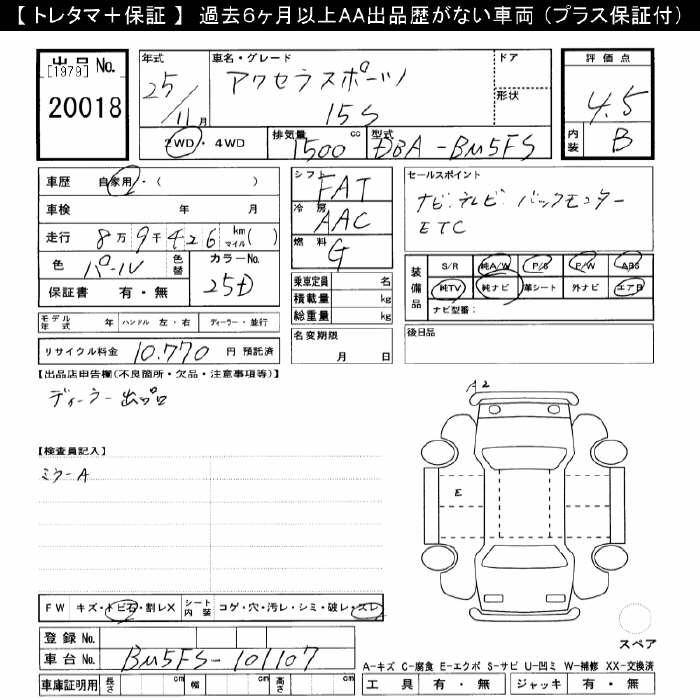 【 トレタマ＋保証 】 過去6ヶ月以上AA出品歴がない車両（プラス保証付）
出品 No. [1979] 20018
年式 25/11月
車名・グレード アクセラスポーツ 15S
ドア
形状
2WD・4WD
排気量 1500 cc
型式 DBA-BM5FS
評価点 4.5
内装 B
車歴 自家用・（ ）
車検 年 月
走行 8万9千426 km マイル（ ）
色 パール 色替 カラーNo. 25D
保証書 有・無
シフト FAT
冷房 AAC
燃料 G
乗車定員 名
積載量 kg
総重量 kg
セールスポイント
ナビ.テレビ バックモニター
ETC
装備品 S/R 純A/W P/S P/W ABS
純TV 純ナビ 革シート 外ナビ エアB
ナビ型番：
モデル年式 年 ハンドル 左・右 ディーラー・並行
名変期限 月 日
後日品
リサイクル料金 10.770 円 預託済
【出品店申告欄（不良箇所・欠品・注意事項等）】
ディーラー出品
A2
【検査員記入】
ミラーA
E
FW キズ・トビ石・割レX シート内装 コゲ・穴・汚レ・シミ・破レ・スレ
登録 No.
スペア
車台 No. BM5FS-101107
A-キズ C-腐食 E-エクボ S-サビ U-凹ミ W-補修 XX-交換済
車庫証明用 長さ cm 幅 cm 高さ cm
工具 有・無 ジャッキ 有・無